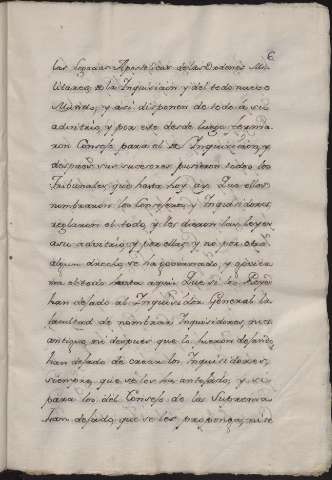 6
las fuerzas Apostolicas de las Ordenes Mi-
litares, de la Inquisicion y del todo nuevo
Mundo, y asi disponen de todo a su
advitrio, y por esto desde luego forma
ron Consejo para el de Inquisicion, y
despues sus sucesores pusieron todos los
Tribunales que hasta hoy ay. Que ellos
nombraron los Consejeros, y Inquisidores,
reglaron el todo, y les dieron las leyes
a su advitrio, y por ellas y no por otro
algun derecho se ha governado, y govier
na el todo hasta aqui. Que si los Reyes
han dejado al Inquisidor General la
facultad de nombrar Inquisidores, ni en
antiguo, ni despues que lo fueron dejando,
han dejado de crear los Inquisidores,
siempre que se les ha antojado, y si
para los del Consejo de la Suprema
han dejado que se les proponga, ni se